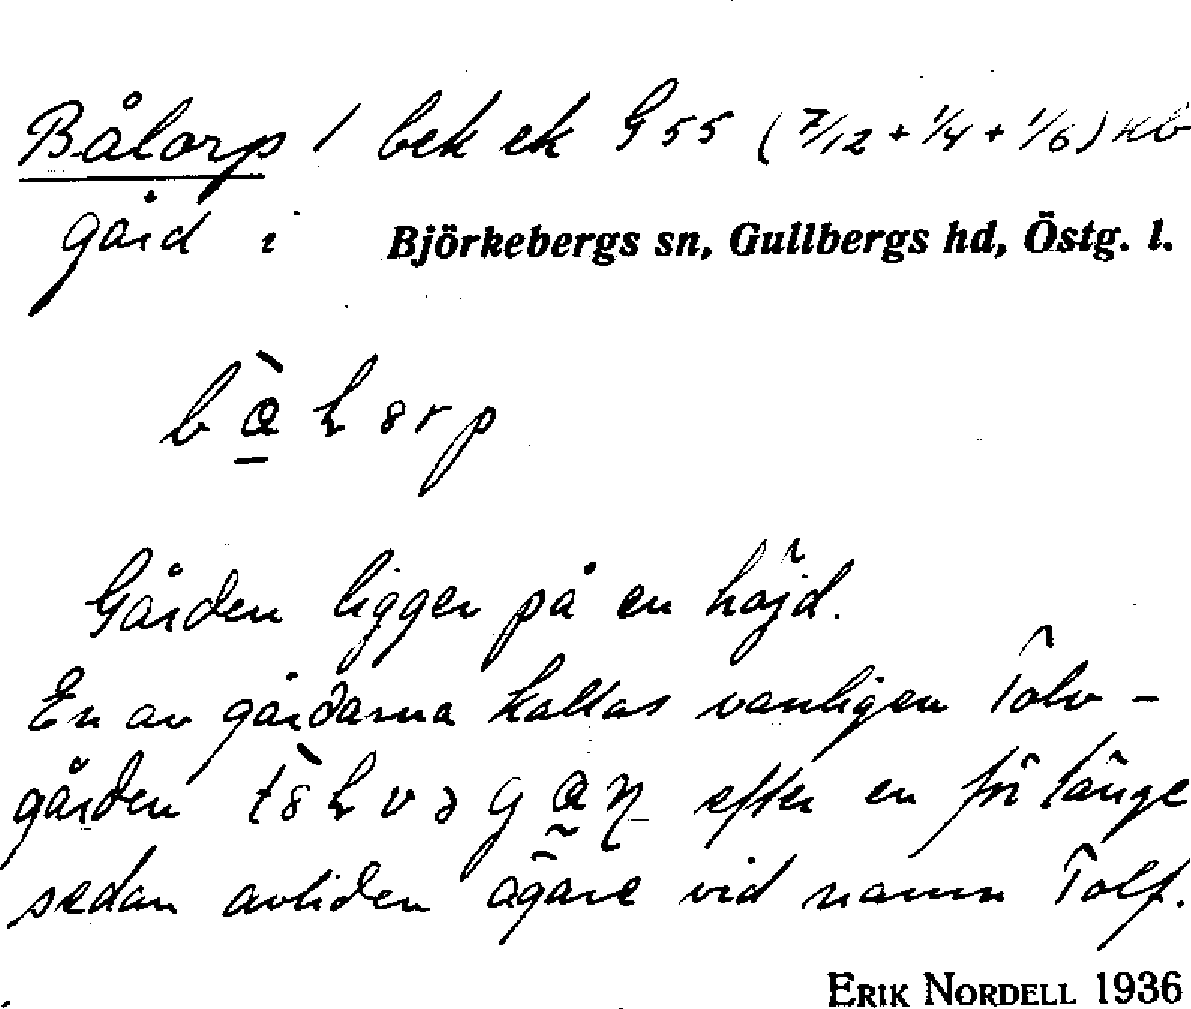 Bålorp 1 bek ek G 55 (7/12 + 1/4 + 1/6) kb
gård i Björkebergs sn, Gullbergs hd, Östg. l.
Gården ligger på en höjd.
En av gårdarna kallas vanligen Tolv-
gården efter en för länge
sedan avliden ägare vid namn Tolf.
ERIK NORDELL 1936